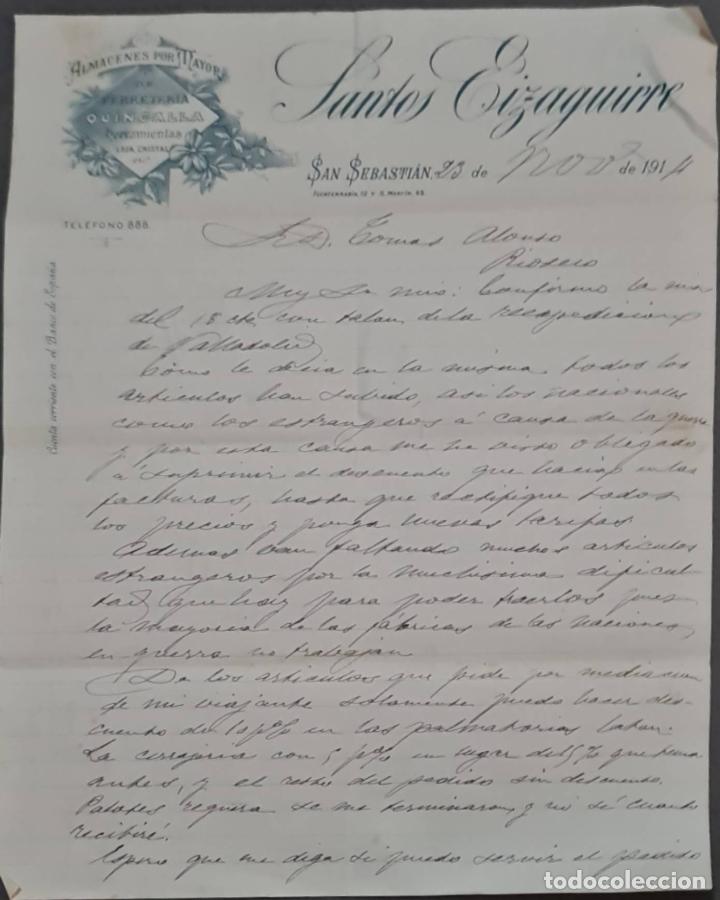 ALMACENES POR MAYOR
DE
FERRETERÍA
QUINCALLA
Herramientas
LOZA, CRISTAL
Santos Eizaguirre
SAN SEBASTIÁN, 23 de Nov de 1914
FUENTERRABÍA, 12 Y S. MARTÍN, 45.
TELÉFONO 888.
Cuenta corriente con el Banco de España
Sr. D. Tomas Alonso
Rioseco
Muy Sr mio: Confirmo la mia
del 18 cte con talon de la reexpedicion
de Valladolid
Como le decia en la misma, todos los
articulos han subido, asi los nacionales
como los estrangeros á causa de la guerra
y por esta causa me he visto obligado
á suprimir el descuento que hacia en las
facturas, hasta que rectifique todos
los precios y ponga nuevas tarifas.
Ademas van faltando muchos articulos
estrangeros por la muchisima dificul
tad que hay para poder traerlos pues
la mayoria de las fábricas de las naciones
en guerra no trabajan.
De los articulos que pide por mediacion
de mi viajante solamente puedo hacer des-
cuento de 10 p% en las palmatorias laton.
La cerrajeria con 5 p% en lugar del 15 % que tenia
antes, y el resto del pedido sin descuento.
se me terminaron y no sé cuanto
recibiré.
Espero que me diga si puedo servir el pedido
todocoleccion.net